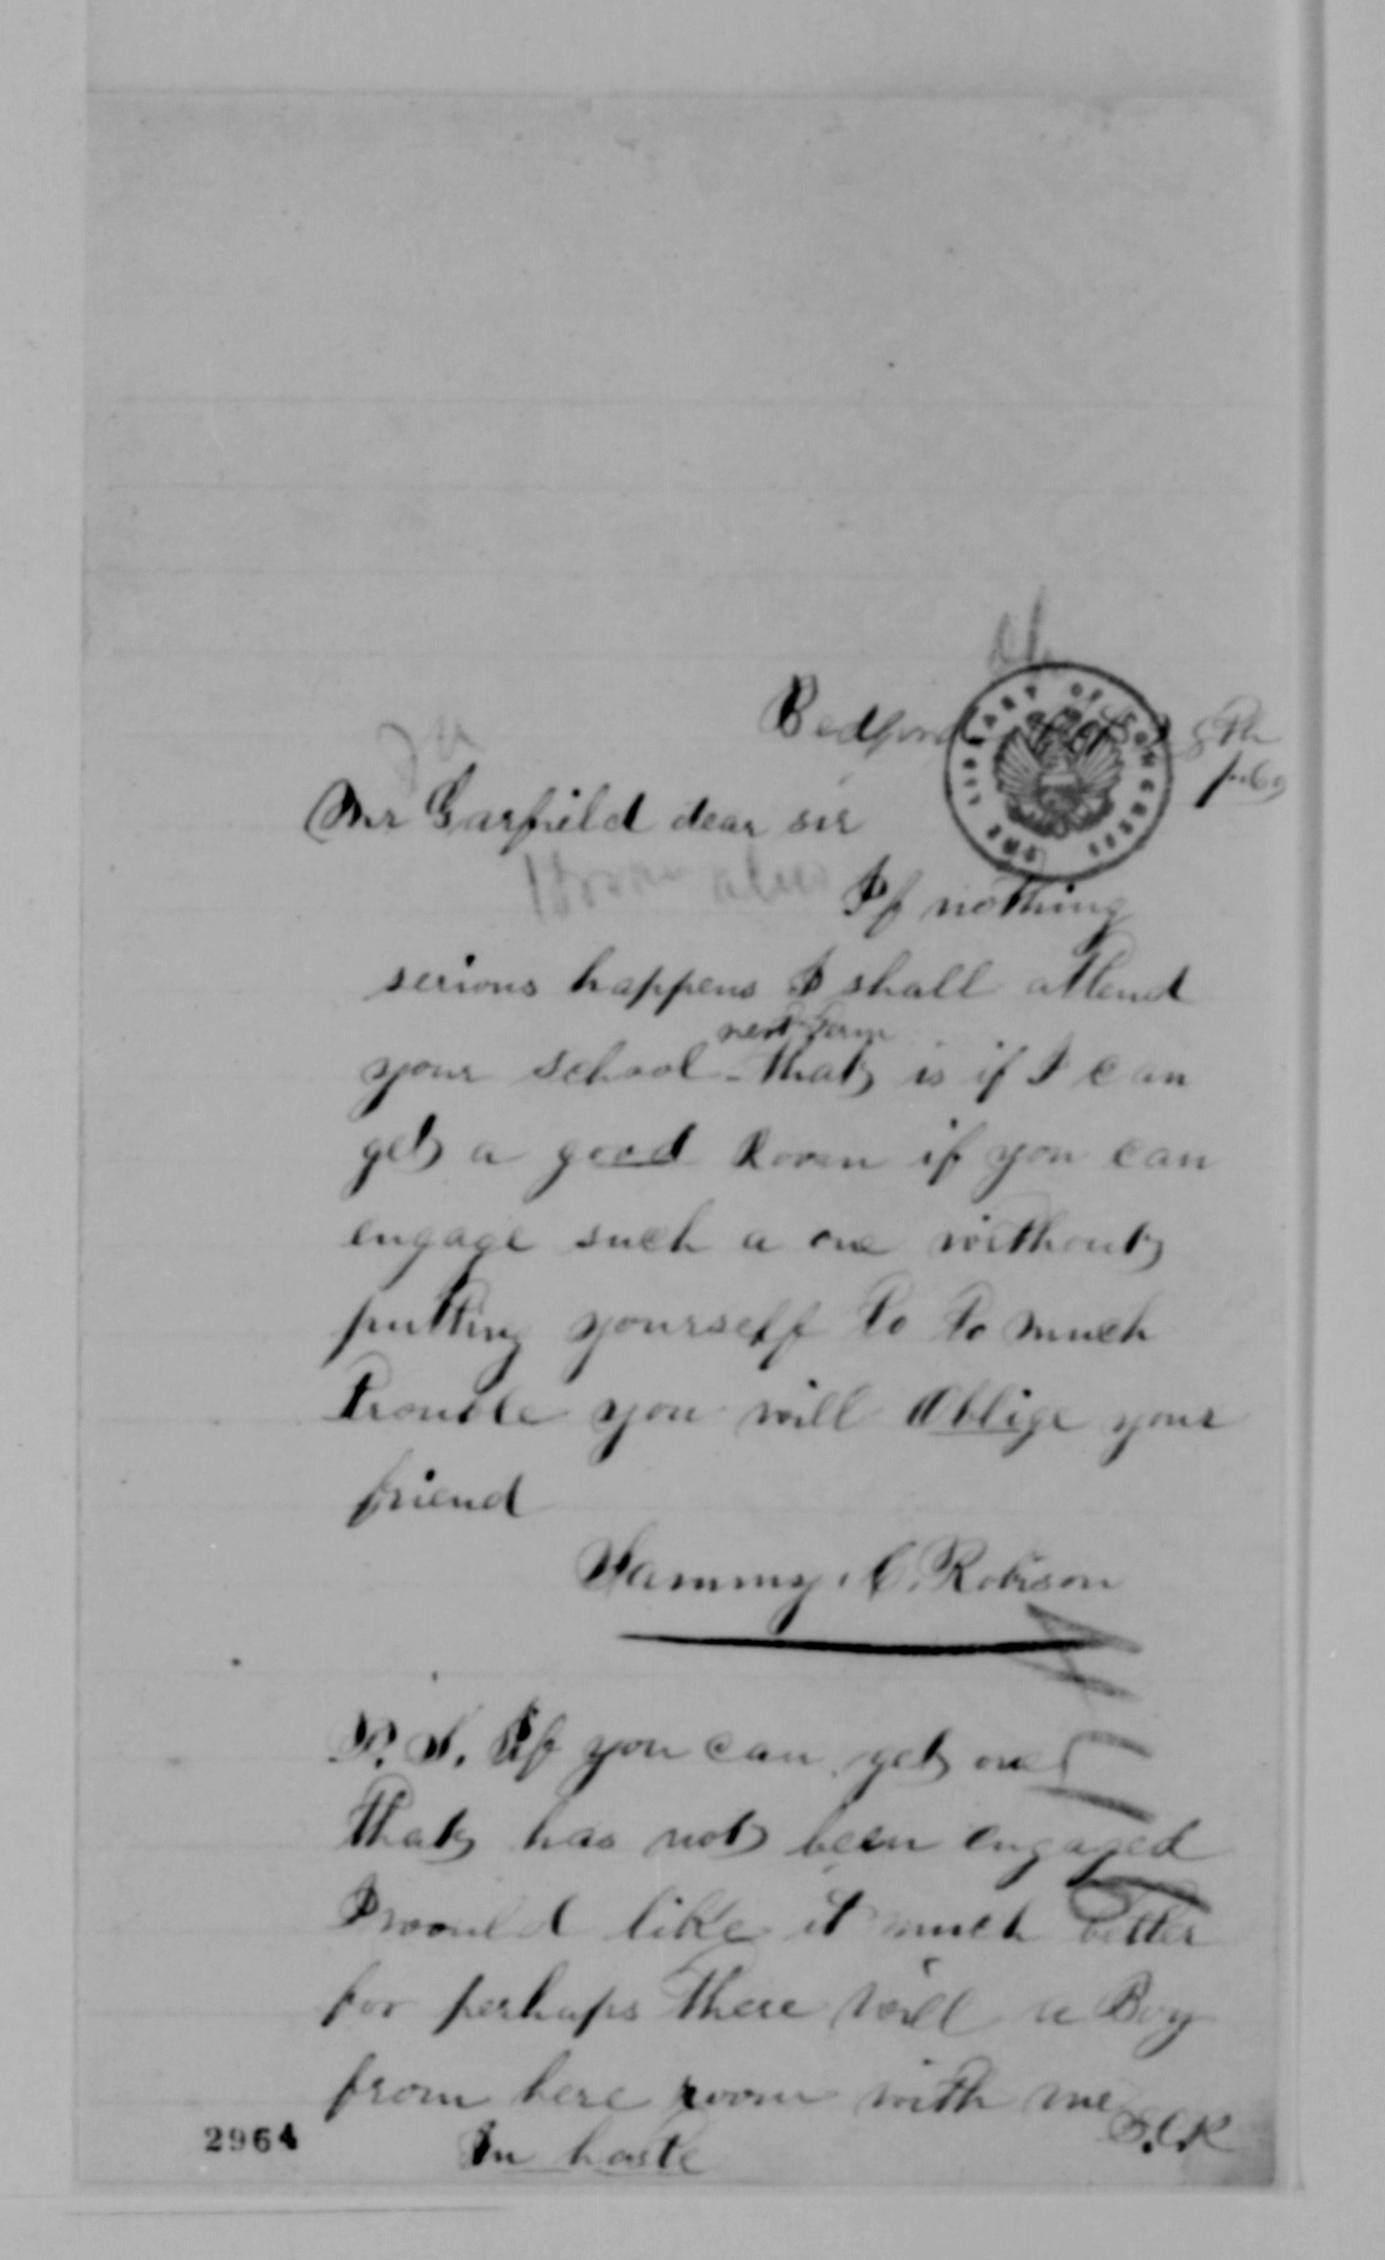 Bedford 8th
Mr Garfield dear sir
If nothing
serious happens I shall attend
next term
your school - that is if I can
get a good Room if you can
engage such a one without
putting yourself to to much
trouble you will Oblige your
friend
Sammy. C. Robison
P. S. If you can get one
that has not been engaged
I would like it much better
for perhaps there will a Boy
from here room with me
S.C.R
In haste
2964
THE LIBRARY OF CONGRESS